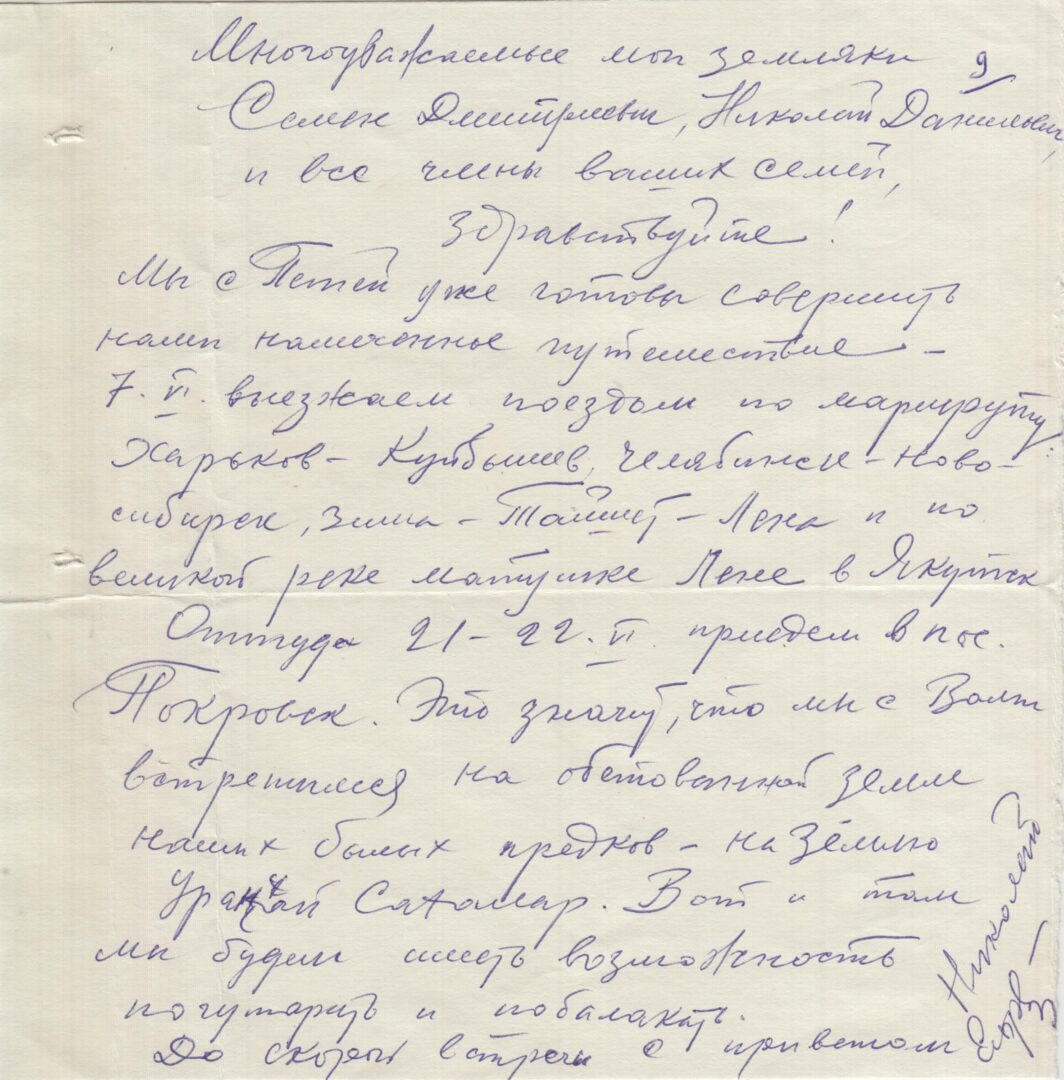 Многоуважаемые мои земляки
9
Семен Дмитриевич, Николай Данилович,
и все члены ваших семей,
Здравствуйте!
Мы с Петей уже готовы совершить
нами намеченное путешествие –
7. VI. выезжаем поездом по маршруту:
Харьков – Куйбышев, Челябинск – Ново-
сибирск, Зима – Тайшет – Лена и по
великой реке матушке Лене в Якутск
Оттуда 21 – 22. VI. приедем в пос.
Покровск. Это значит, что мы с Вами
встретимся на обетованной земле
наших былых предков – на Землю
Саха. Вот и там
мы будем иметь возможность
погутарить и побалакать.
До скорой встречи с приветом
Николай